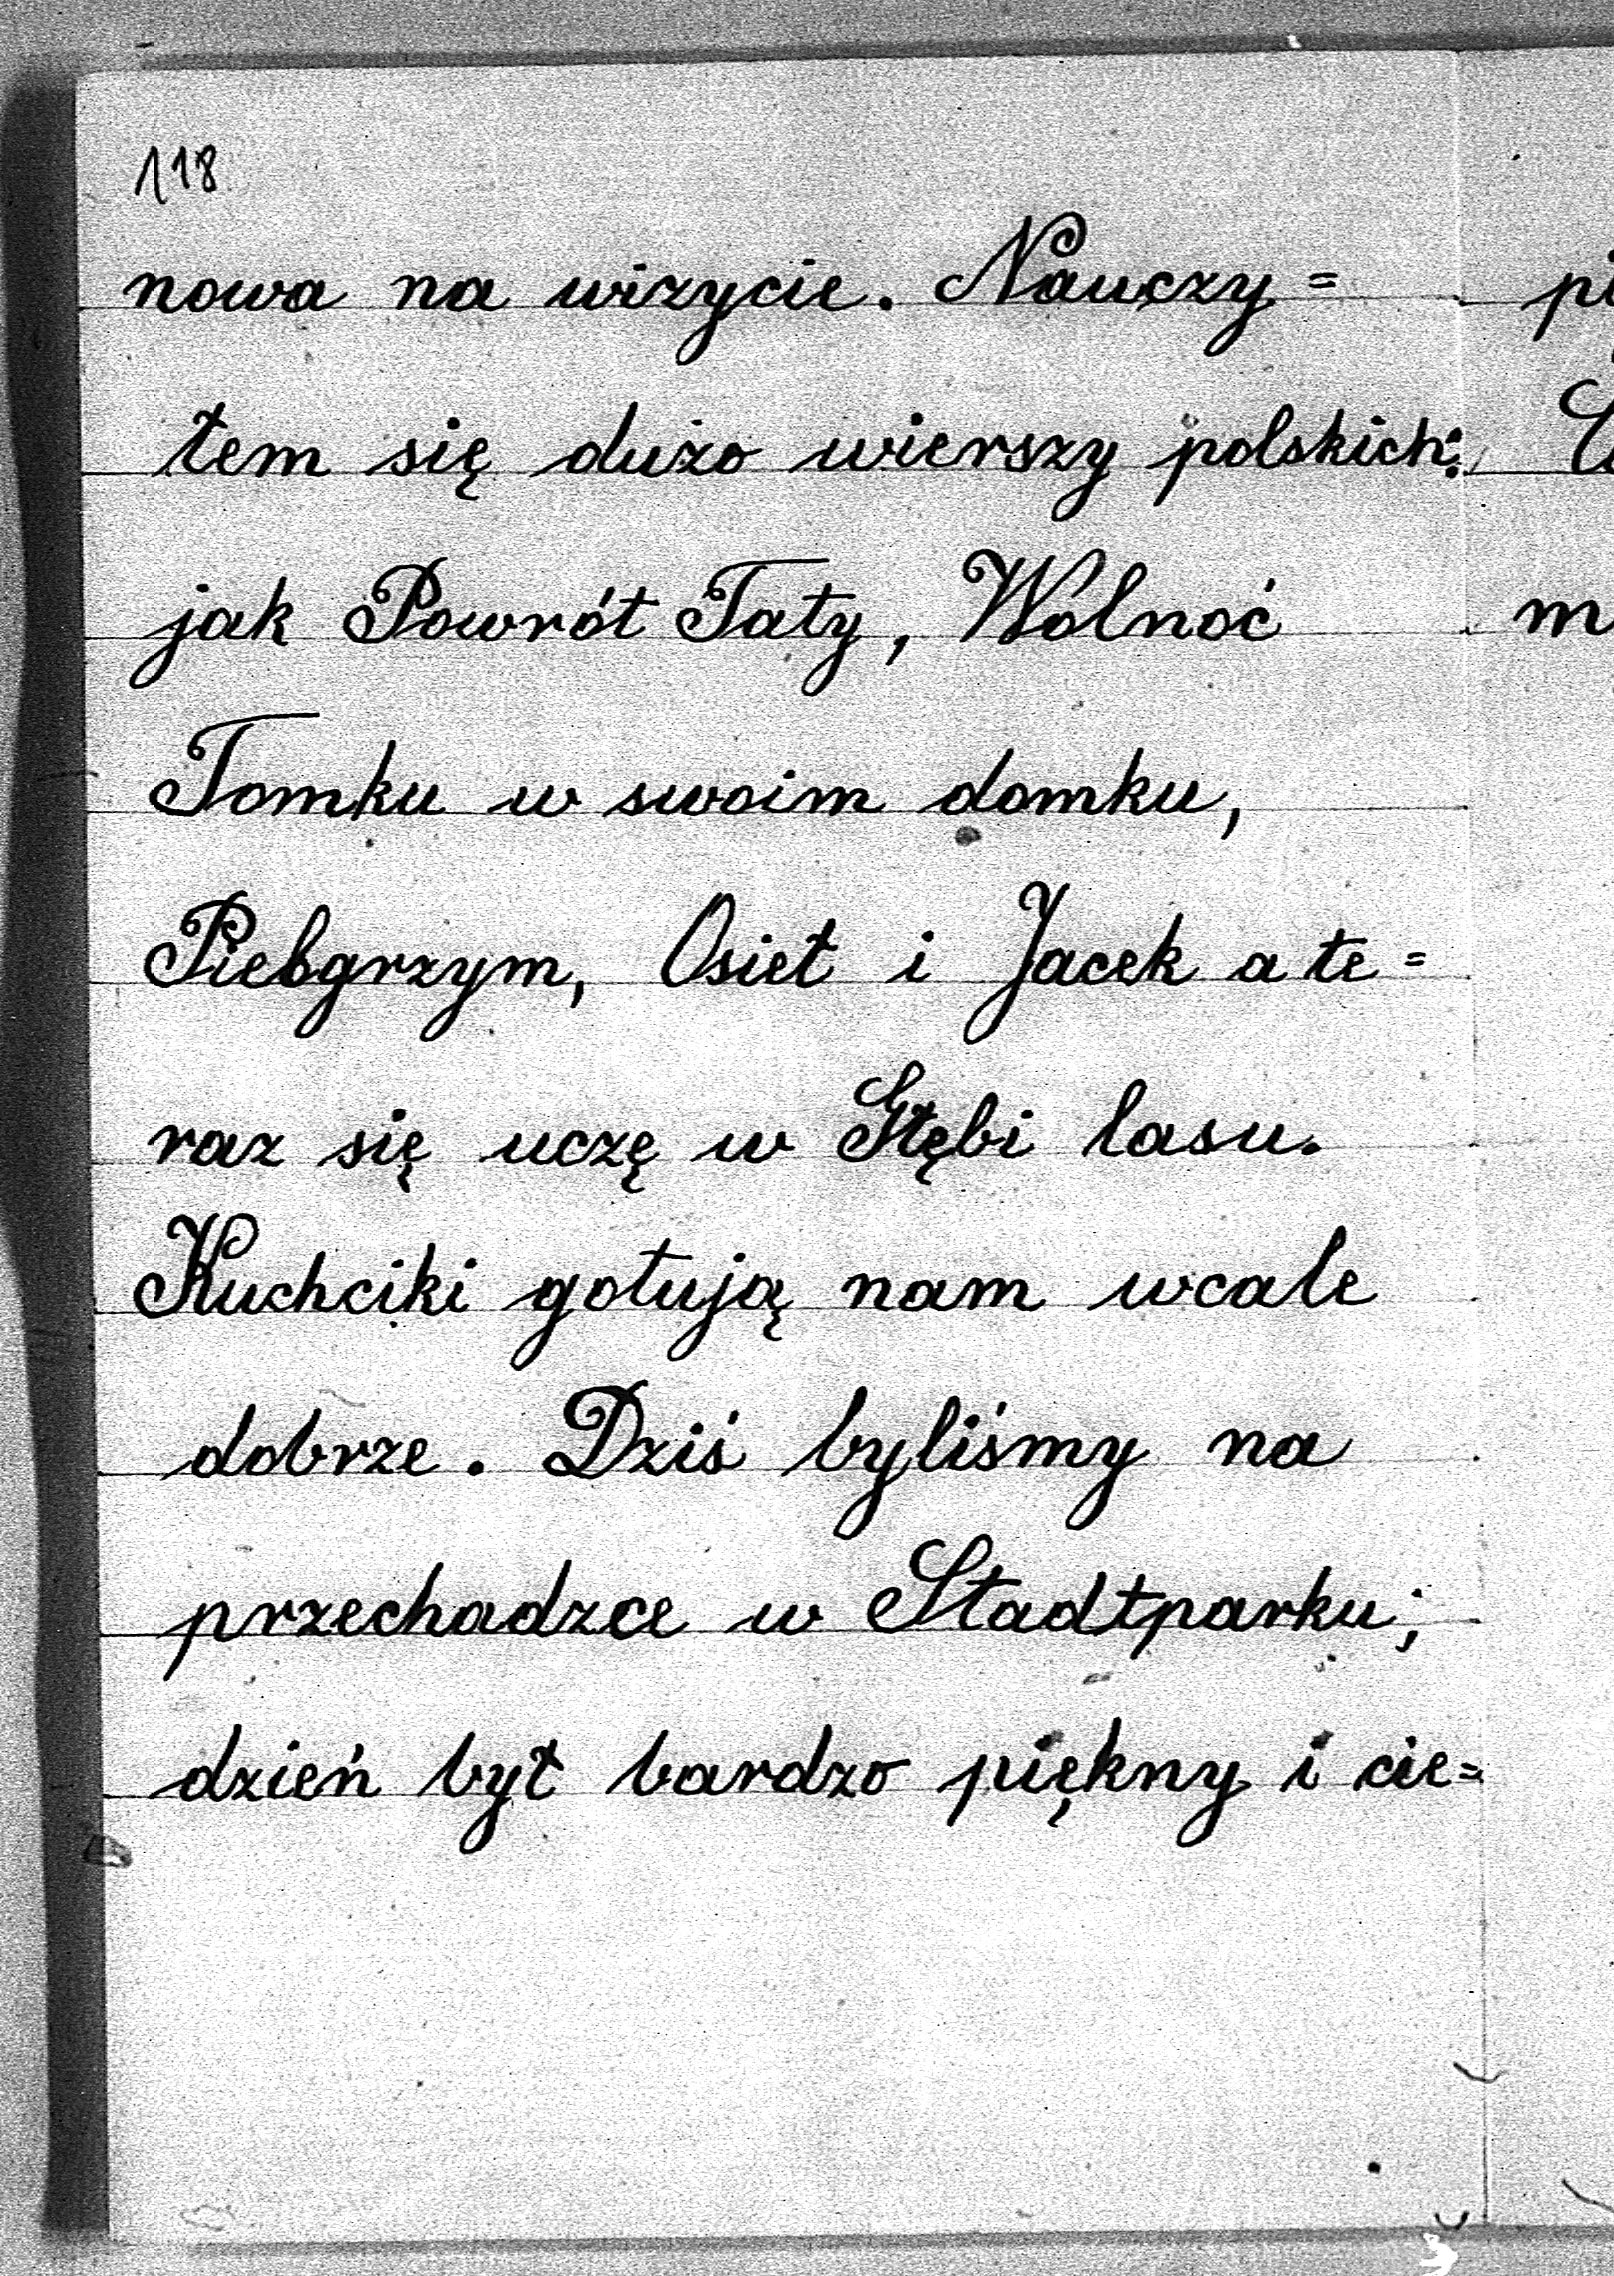 118
nowa na wizycie. Nauczy=
tem się dużo wierszy polskich:
jak Powrót Taty, Wolnoć
Tomku w swoim domku,
Piebgrzym, Osieł i Jacek a te=
raz się uczę w Głębi lasu.
Kuchciki gotują nam wcale
dobrze. Dziś byliśmy na
przechadzce w Stadtparku;
dzień był bardzo piękny i cie=